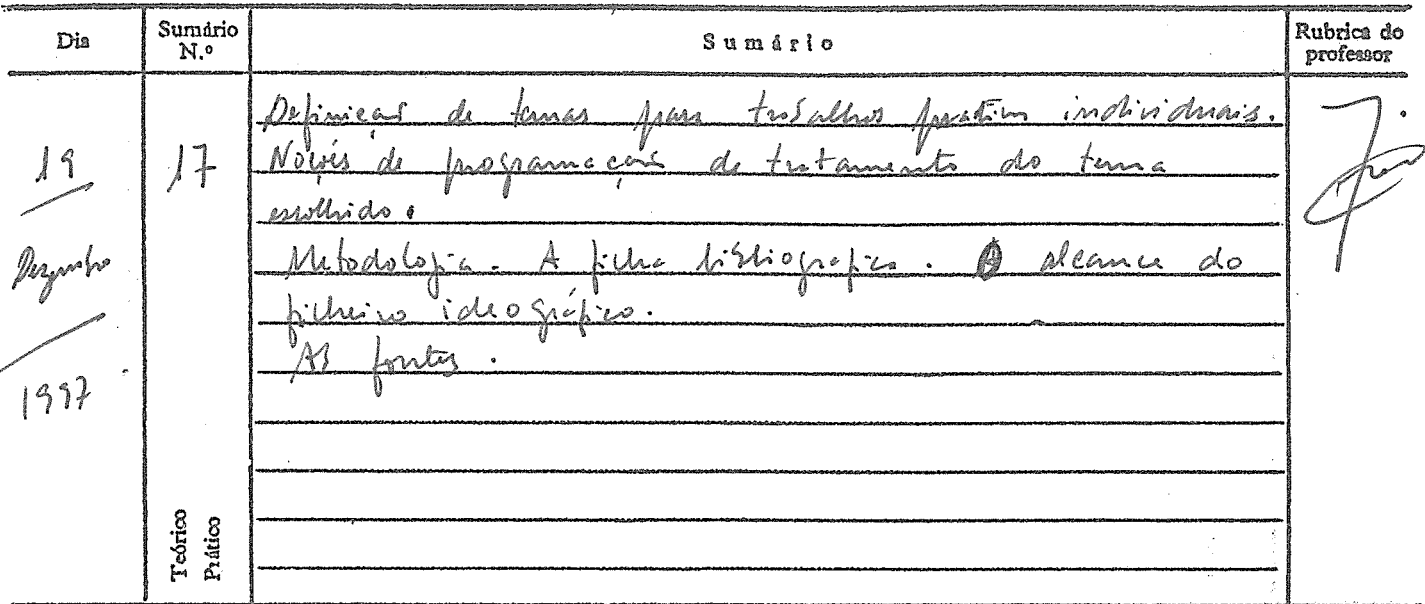 Dia
Sumário N.º
Sumário
Rubrica do professor
19
Dezembro
1997
17
Teórico
Prático
Definição de temas para trabalhos práticos individuais.
Noções de programação de tratamento do tema
escolhido.
Metodologia. A ficha bibliografica. O alcance do
ficheiro ideográfico.
As fontes.